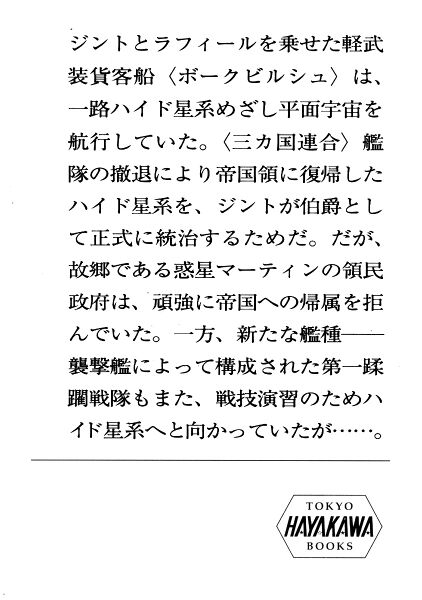 ジントとラフィールを乗せた軽武
装貨客船〈ボークビルシュ〉は、
一路ハイド星系めざし平面宇宙を
航行していた。〈三カ国連合〉艦
隊の撤退により帝国領に復帰した
ハイド星系を、ジントが伯爵とし
て正式に統治するためだ。だが、
故郷である惑星マーティンの領民
政府は、頑強に帝国への帰属を拒
んでいた。一方、新たな艦種――
襲撃艦によって構成された第一蹂
躙戦隊もまた、戦技演習のためハ
イド星系へと向かっていたが……。
TOKYO
HAYAKAWA
BOOKS